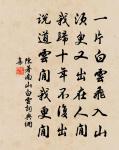 一片白雲飛入山
須臾又出在人間
我歸十年不復出
說道雲閒我更閒
陳著南山白雲